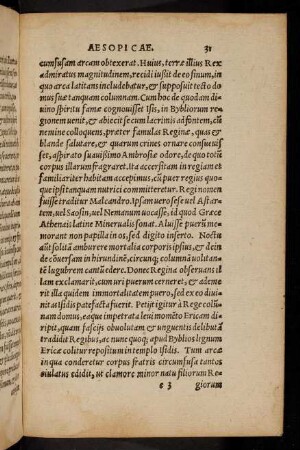 AESOPICAE. 31
cumfusam arcam obtexerat. Huius, terræ illius Rex
admiratus magnitudinem, recidi iussit de eo sinum, in
quo arca latitans includebatur, & supposuit tecto do
mus suæ tanquam columnam. Cum hoc de quodam di
uino spiritu famæ cognouisset Isis, in Bybliorum re
gionem uenit, & abiecit se cum lacrimis ad fontem, cū
nemine colloquens, præter famulas Reginæ, quas &
blande salutare, & quarum crines ornare consueuis
set, aspirato suauissimo Ambrosiæ odore, de quo totū
corpus illarum fragraret. Ita accersitam in regiam et
familiariter habitam accepimus, cū puer regius quo-
que ipsi tanquam nutrici committeretur. Regi nomen
fuisse traditur Malcandro. Ipsam uero sese uel Astar-
tem, uel Saosin, uel Nemanum uocasse, id quod Græce
Athenais latine Minerualis sonat. Aluisse puerū me-
morant non papilla in os, sed digito inserto. Noctu
aūt solitā amburere mortalia corporis ipsius, & dein
de cōuersam in hirundinē, circūq; columnā uolitan-
tē lugubrem cantū edere. Donec Regina obseruans il
lam exclamarit, cum uri puerum cerneret, & ademe-
rit illa quidem immortalitatem puero, sed ex eo diui-
nitas Isidis patefacta fuerit. Petijt igitur à Rege colu
mnam domus, eaque impetrata leui momēto Ericam di
ripit, quam fascijs obuolutam & unguentis delibutā
tradidit Regibus, ac nunc quoq; apud Byblios lignum
Ericæ colitur repositum in templo Isidis. Tum arcæ
in qua conderetur corpus fratris circumfusa tantos
eiulatus edidit, ut clamore minor natu filiorum Re-
e 3 giorum